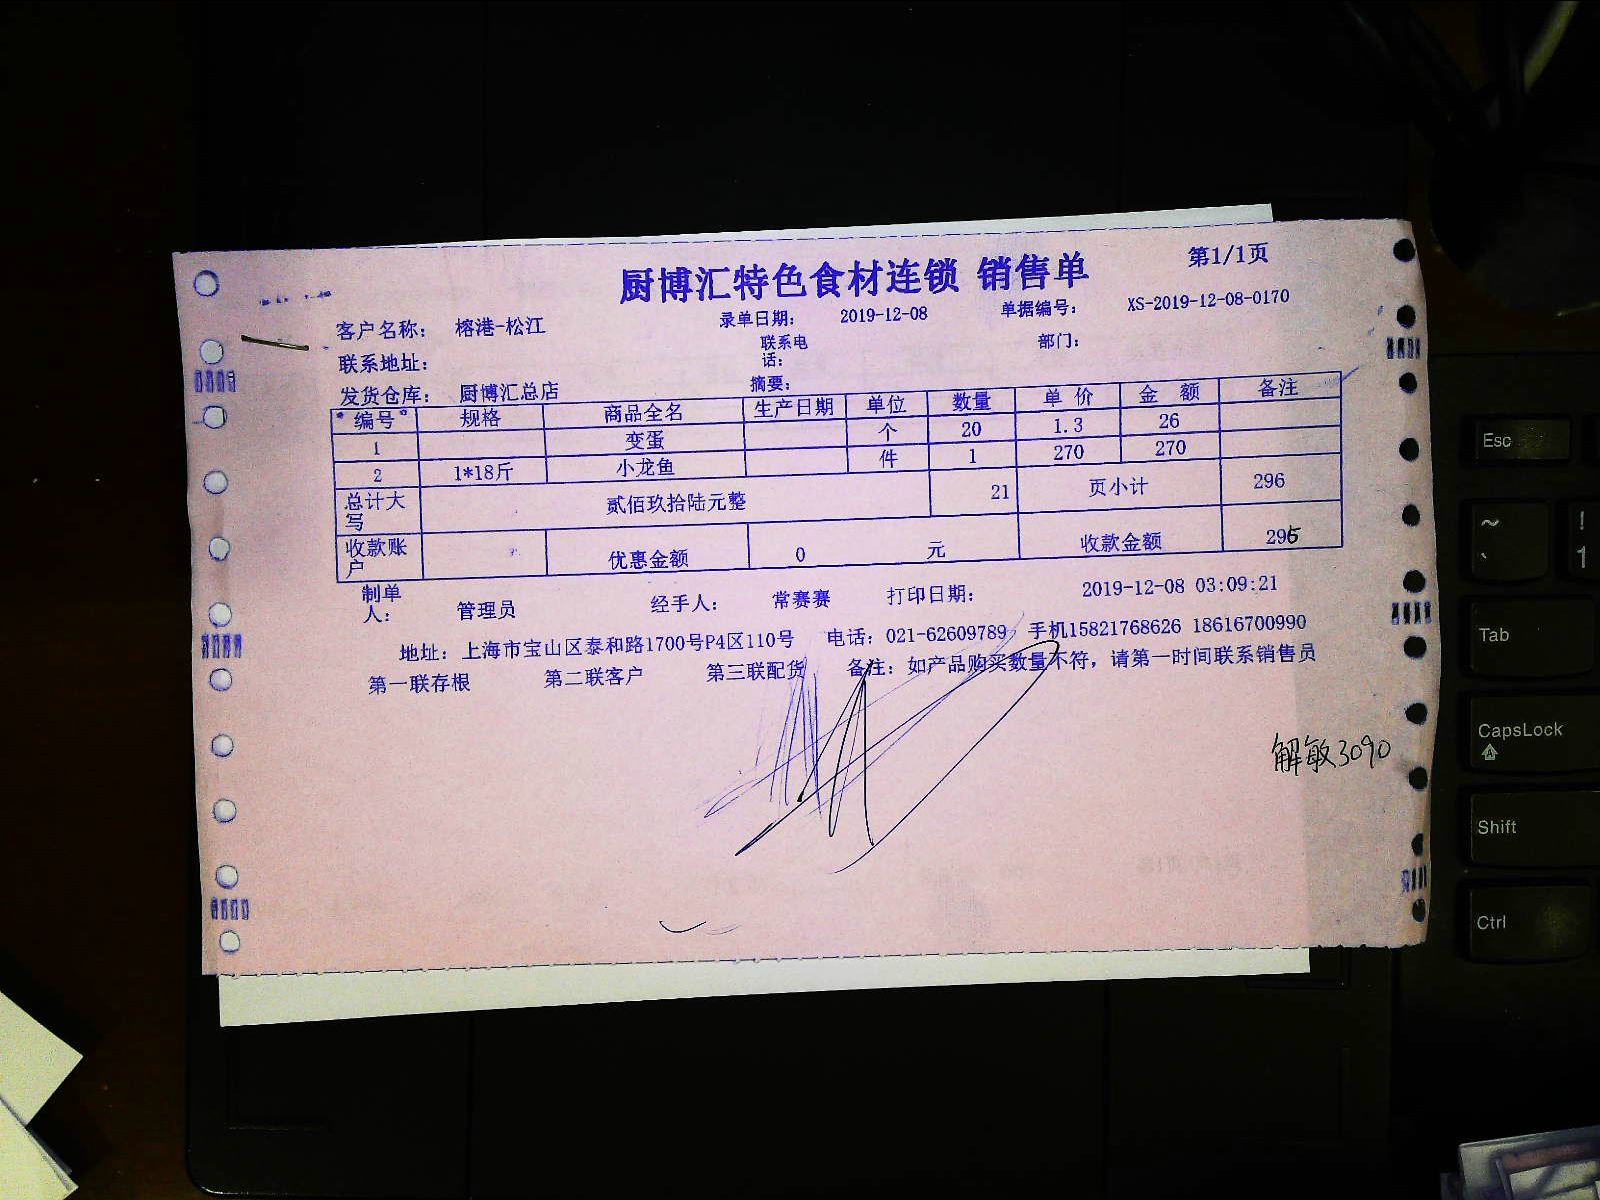 厨博汇特色食材连锁 销售单 第1/1页
客户名称: 榕港-松江 录单日期: 2019-12-08 单据编号: XS-2019-12-08-0170
联系地址: 联系电话: 部门:
发货仓库: 厨博汇总店 摘要:
编号 规格 商品全名 生产日期 单位 数量 单价 金额 备注
1 变蛋 个 20 1.3 26
2 1*18斤 小龙鱼 件 1 270 270
总计大写 贰佰玖拾陆元整 21 页小计 296
收款账户 优惠金额 0 元 收款金额 295
制单人: 管理员 经手人: 常赛赛 打印日期: 2019-12-08 03:09:21
地址: 上海市宝山区泰和路1700号P4区110号 电话: 021-62609789, 手机15821768626 18616700990
第一联存根 第二联客户 第三联配货 备注: 如产品购买数量不符, 请第一时间联系销售员
解敏3090
Esc
~ !
` 1
Tab
CapsLock
Shift
Ctrl